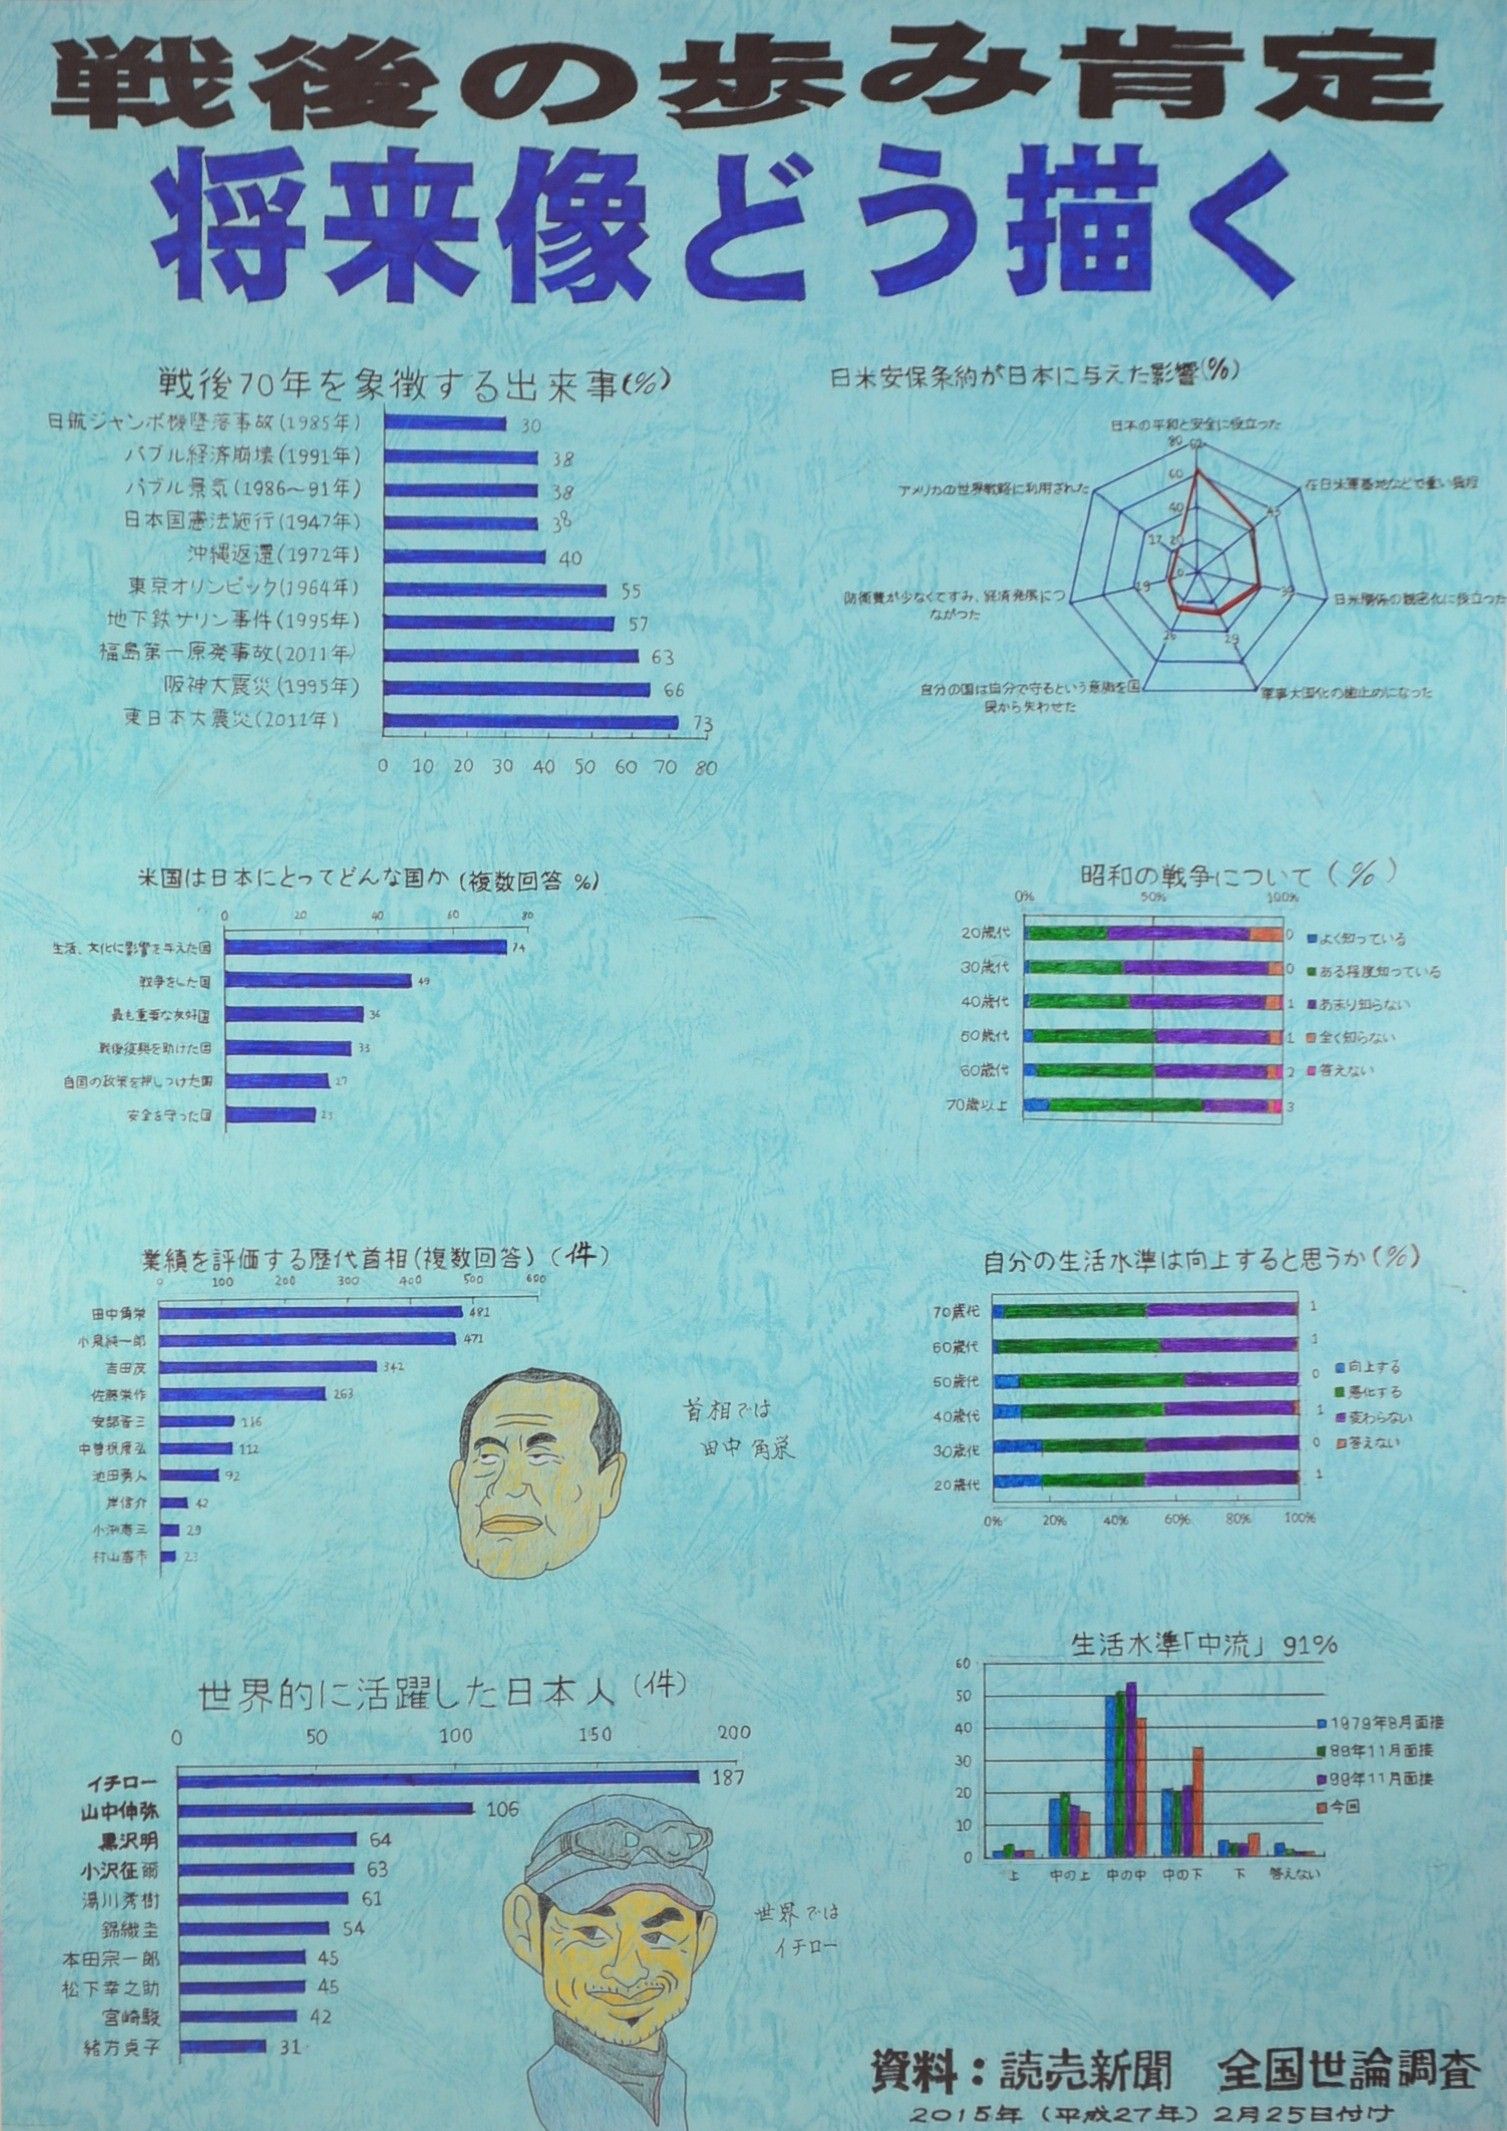 戦後の歩み肯定
将来像どう描く
戦後70年を象徴する出来事(%)
日航ジャンボ機墜落事故(1985年) 30
バブル経済崩壊(1991年) 38
バブル景気(1986~91年) 38
日本国憲法施行(1947年) 38
沖縄返還(1972年) 40
東京オリンピック(1964年) 55
地下鉄サリン事件(1995年) 57
福島第一原発事故(2011年) 63
阪神大震災(1995年) 66
東日本大震災(2011年) 73
0 10 20 30 40 50 60 70 80
日米安保条約が日本に与えた影響(%)
日本の平和と安全に役立った
80
60
40
20
0
在日米軍基地などで重い負担
日米関係の親密化に役立った
29
軍事大国化の歯止めになった
26
自分の国は自分で守るという意識を国
民から失わせた
19
防衛費が少なくてすみ、経済発展につ
ながった
17
アメリカの世界戦略に利用された
米国は日本にとってどんな国か(複数回答 %)
0 20 40 60 80
生活、文化に影響を与えた国 74
戦争をした国 49
最も重要な友好国 36
戦後復興を助けた国 33
自国の政策を押しつけた国 27
安全を守った国 23
昭和の戦争について(%)
0% 50% 100%
20歳代 0
30歳代 0
40歳代 1
50歳代 1
60歳代 2
70歳以上 3
よく知っている
ある程度知っている
あまり知らない
全く知らない
答えない
業績を評価する歴代首相(複数回答)(件)
0 100 200 300 400 500 600
田中角栄 481
小泉純一郎 471
吉田茂 342
佐藤栄作 263
安部晋三 116
中曽根康弘 112
池田勇人 92
岸信介 42
小渕恵三 29
村山富市 23
首相では
田中角栄
自分の生活水準は向上すると思うか(%)
70歳代 1
60歳代 1
50歳代 0
40歳代 1
30歳代 0
20歳代 1
0% 20% 40% 60% 80% 100%
向上する
悪化する
変わらない
答えない
世界的に活躍した日本人(件)
0 50 100 150 200
イチロー 187
山中伸弥 106
黒沢明 64
小沢征爾 63
湯川秀樹 61
錦織圭 54
本田宗一郎 45
松下幸之助 45
宮崎駿 42
緒方貞子 31
世界では
イチロー
生活水準「中流」91%
60
50
40
30
20
10
0
上 中の上 中の中 中の下 下 答えない
1979年8月面接
89年11月面接
99年11月面接
今回
資料:読売新聞 全国世論調査
2015年(平成27年)2月25日付け